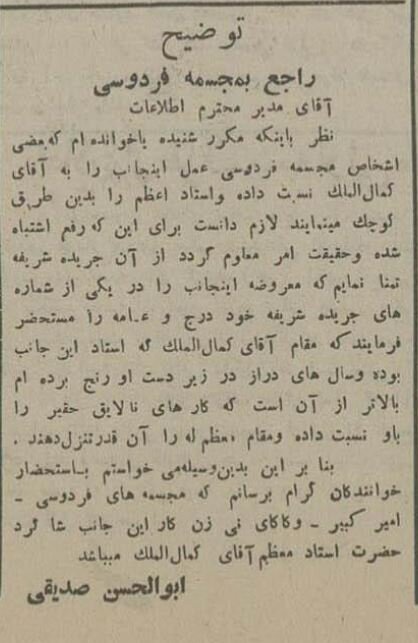 توضیح
راجع بمجسمه فردوسی
آقای مدیر محترم اطلاعات
نظر باینکه مکرر شنیده یاخوانده ام که بعضی
اشخاص مجسمه فردوسی عمل اینجانب را به آقای
کمال‌الملك نسبت داده واستاد اعظم را بدین طریق
کوچك مینمایند لازم دانست برای این که رفع اشتباه
شده وحقیقت امر معلوم گردد از آن جریده شریفه
تمنا نمایم که معروضه اینجانب را در یکی از شماره
های جریده شریفه خود درج و عامه را مستحضر
فرمایند که مقام آقای کمال‌الملك که استاد این جانب
بوده وسال های دراز در زیر دست او رنج برده ام
بالاتر از آن است که کار های نالایق حقیر را
باو نسبت داده ومقام معظم له را آن قدر تنزل دهند .
بنا بر این بدین وسیله می خواستم باستحضار
خوانندگان گرام برسانم که مجسمه های فردوسی ـ
امیر کبیر ـ وکاکای نی زن کار این جانب شاگرد
حضرت استاد معظم آقای کمال‌الملك میباشد
ابوالحسن صدیقی